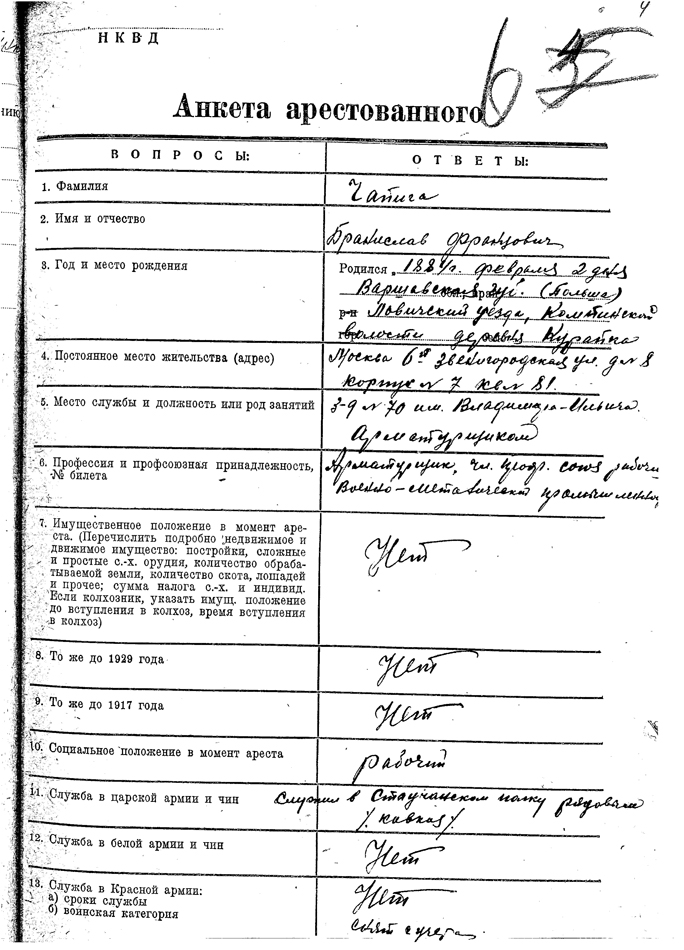 4
НКВД
6
Анкета арестованного
ВОПРОСЫ:
ОТВЕТЫ:
1. Фамилия
Чапига
2. Имя и отчество
Бранислав Францович
3. Год и место рождения
Родился „1884 г. февраля 2 дня
Варшавская губ. (Польша)
р-н Ловичский уезда,
волости деревня
4. Постоянное место жительства (адрес)
Москва 6ая Звенигородская ул. д № 8
корпус № 7 кв № 81.
5. Место службы и должность или род занятий
З-д № 70 им. Владимира-Ильича.
Арматурщиком
6. Профессия и профсоюзная принадлежность,
№ билета
Арматурщик, чл. проф. союз рабочи
Военно-
7. Имущественное положение в момент аре-
ста. (Перечислить подробно недвижимое и
движимое имущество: постройки, сложные
и простые с.-х. орудия, количество обраба-
тываемой земли, количество скота, лошадей
и прочее; сумма налога с.-х. и индивид.
Если колхозник, указать имущ. положение
до вступления в колхоз, время вступления
в колхоз)
Нет
8. То же до 1929 года
Нет
9. То же до 1917 года
Нет
10. Социальное положение в момент ареста
рабочий
11. Служба в царской армии и чин
Служил в полку рядовым
/. кавказ /.
12. Служба в белой армии и чин
Нет
13. Служба в Красной армии:
а) сроки службы
б) воинская категория
Нет
снят с учета.